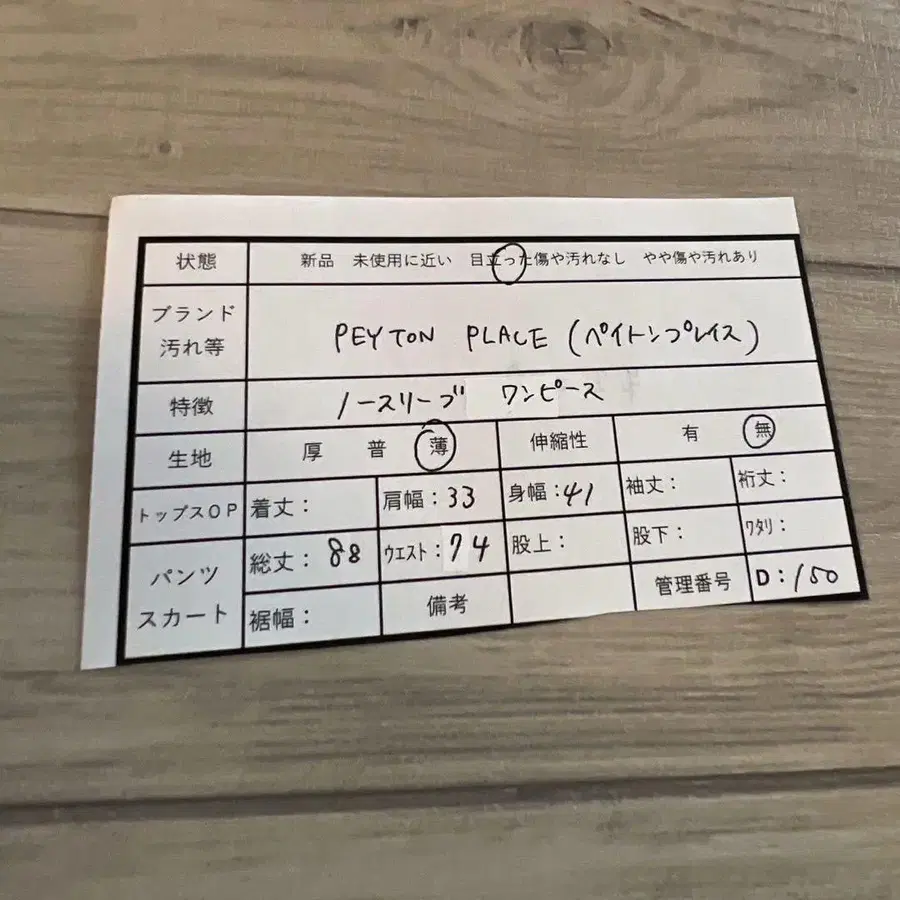 状態 新品 未使用に近い 目立った傷や汚れなし やや傷や汚れあり
ブランド
汚れ等
PEYTON PLACE (ペイトンプレイス)
特徴 ノースリーブ ワンピース
生地 厚 普 薄 伸縮性 有 無
トップスOP 着丈: 肩幅:33 身幅:41 袖丈: 裄丈:
パンツ
スカート
総丈:88 ウエスト:74 股上: 股下: ワタリ:
裾幅: 備考 管理番号 D:150